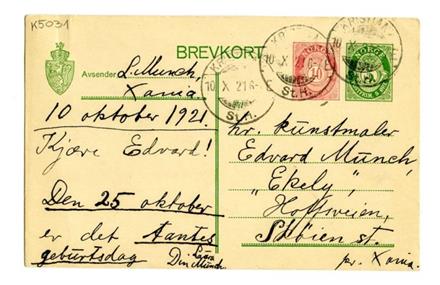 K5031
BREVKORT
Avsender L. Munch,
Xania.
10 oktober 1921.
Kjære Edvard!
Den 25 oktober
er det Tantes
geburtsdag
Din Laura
Munch.
KRISTIANIA
10 X 21 6- E
St.H.
NORGE
10
hr. kunstmaler
Edvard Munch,
„Ekely"
Hoffsveien,
Skøien st.
pr. Xania.